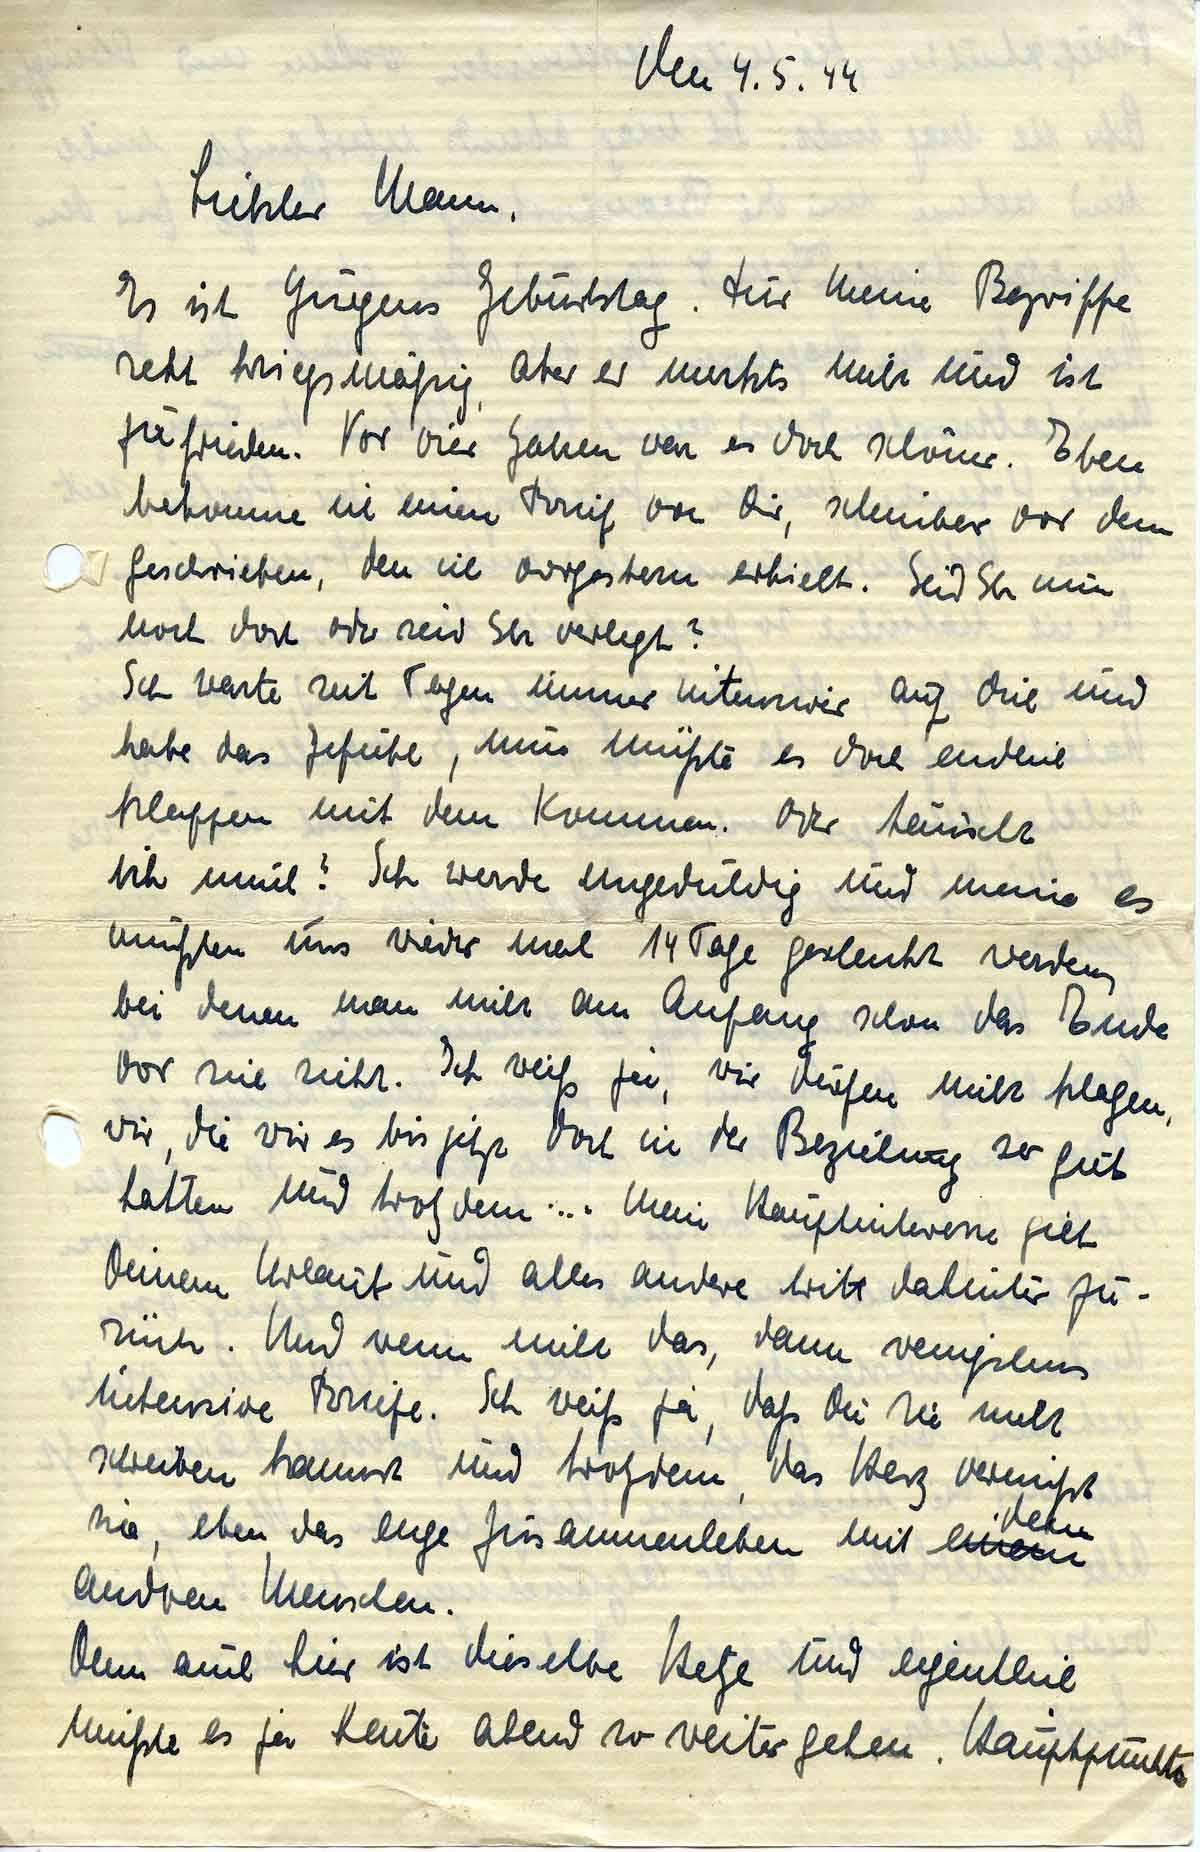 Den 4.5.44
Liebster Mann.
Es ist Jürgens Geburtstag. Für meine Begriffe
recht kriegsmäßig, aber er merkts nicht und ist
zufrieden. Vor vier Jahren war es doch schöner. Eben
bekomme ich einen Brief von Dir, scheinbar vor dem
geschrieben, den ich vorgestern erhielt. Seid Ihr nun
noch dort oder seid Ihr verlegt?
Ich warte seit Tagen immer intensiver auf Dich und
habe das Gefühl, nun müßte es doch endlich
klappen mit dem Kommen. Oder täuscht
sich mich? Ich werde ungeduldig und meine es
müßten uns wieder mal 14 Tage geschenkt werden,
bei denen man nicht am Anfang schon das Ende
vor sich sieht. Ich weiß ja, wir dürfen nicht klagen,
wir, die wir es bis jetzt doch in der Beziehung so gut
hatten und trotzdem .... Mein Hauptinteresse gilt
Deinem Urlaub und alles andere tritt dahinter zu-
rück. Und wenn nicht das, dann wenigstens
intensive Briefe. Ich weiß ja, daß Du sie nicht
schreiben kannst und trotzdem, das Herz vermißt
sie, eben das enge Zusammenleben mit einem dem
andren Menschen.
Denn auch hier ist dieselbe Hetze und eigentlich
müßte es ja heute abend so weiter gehen. Hauptpunkte